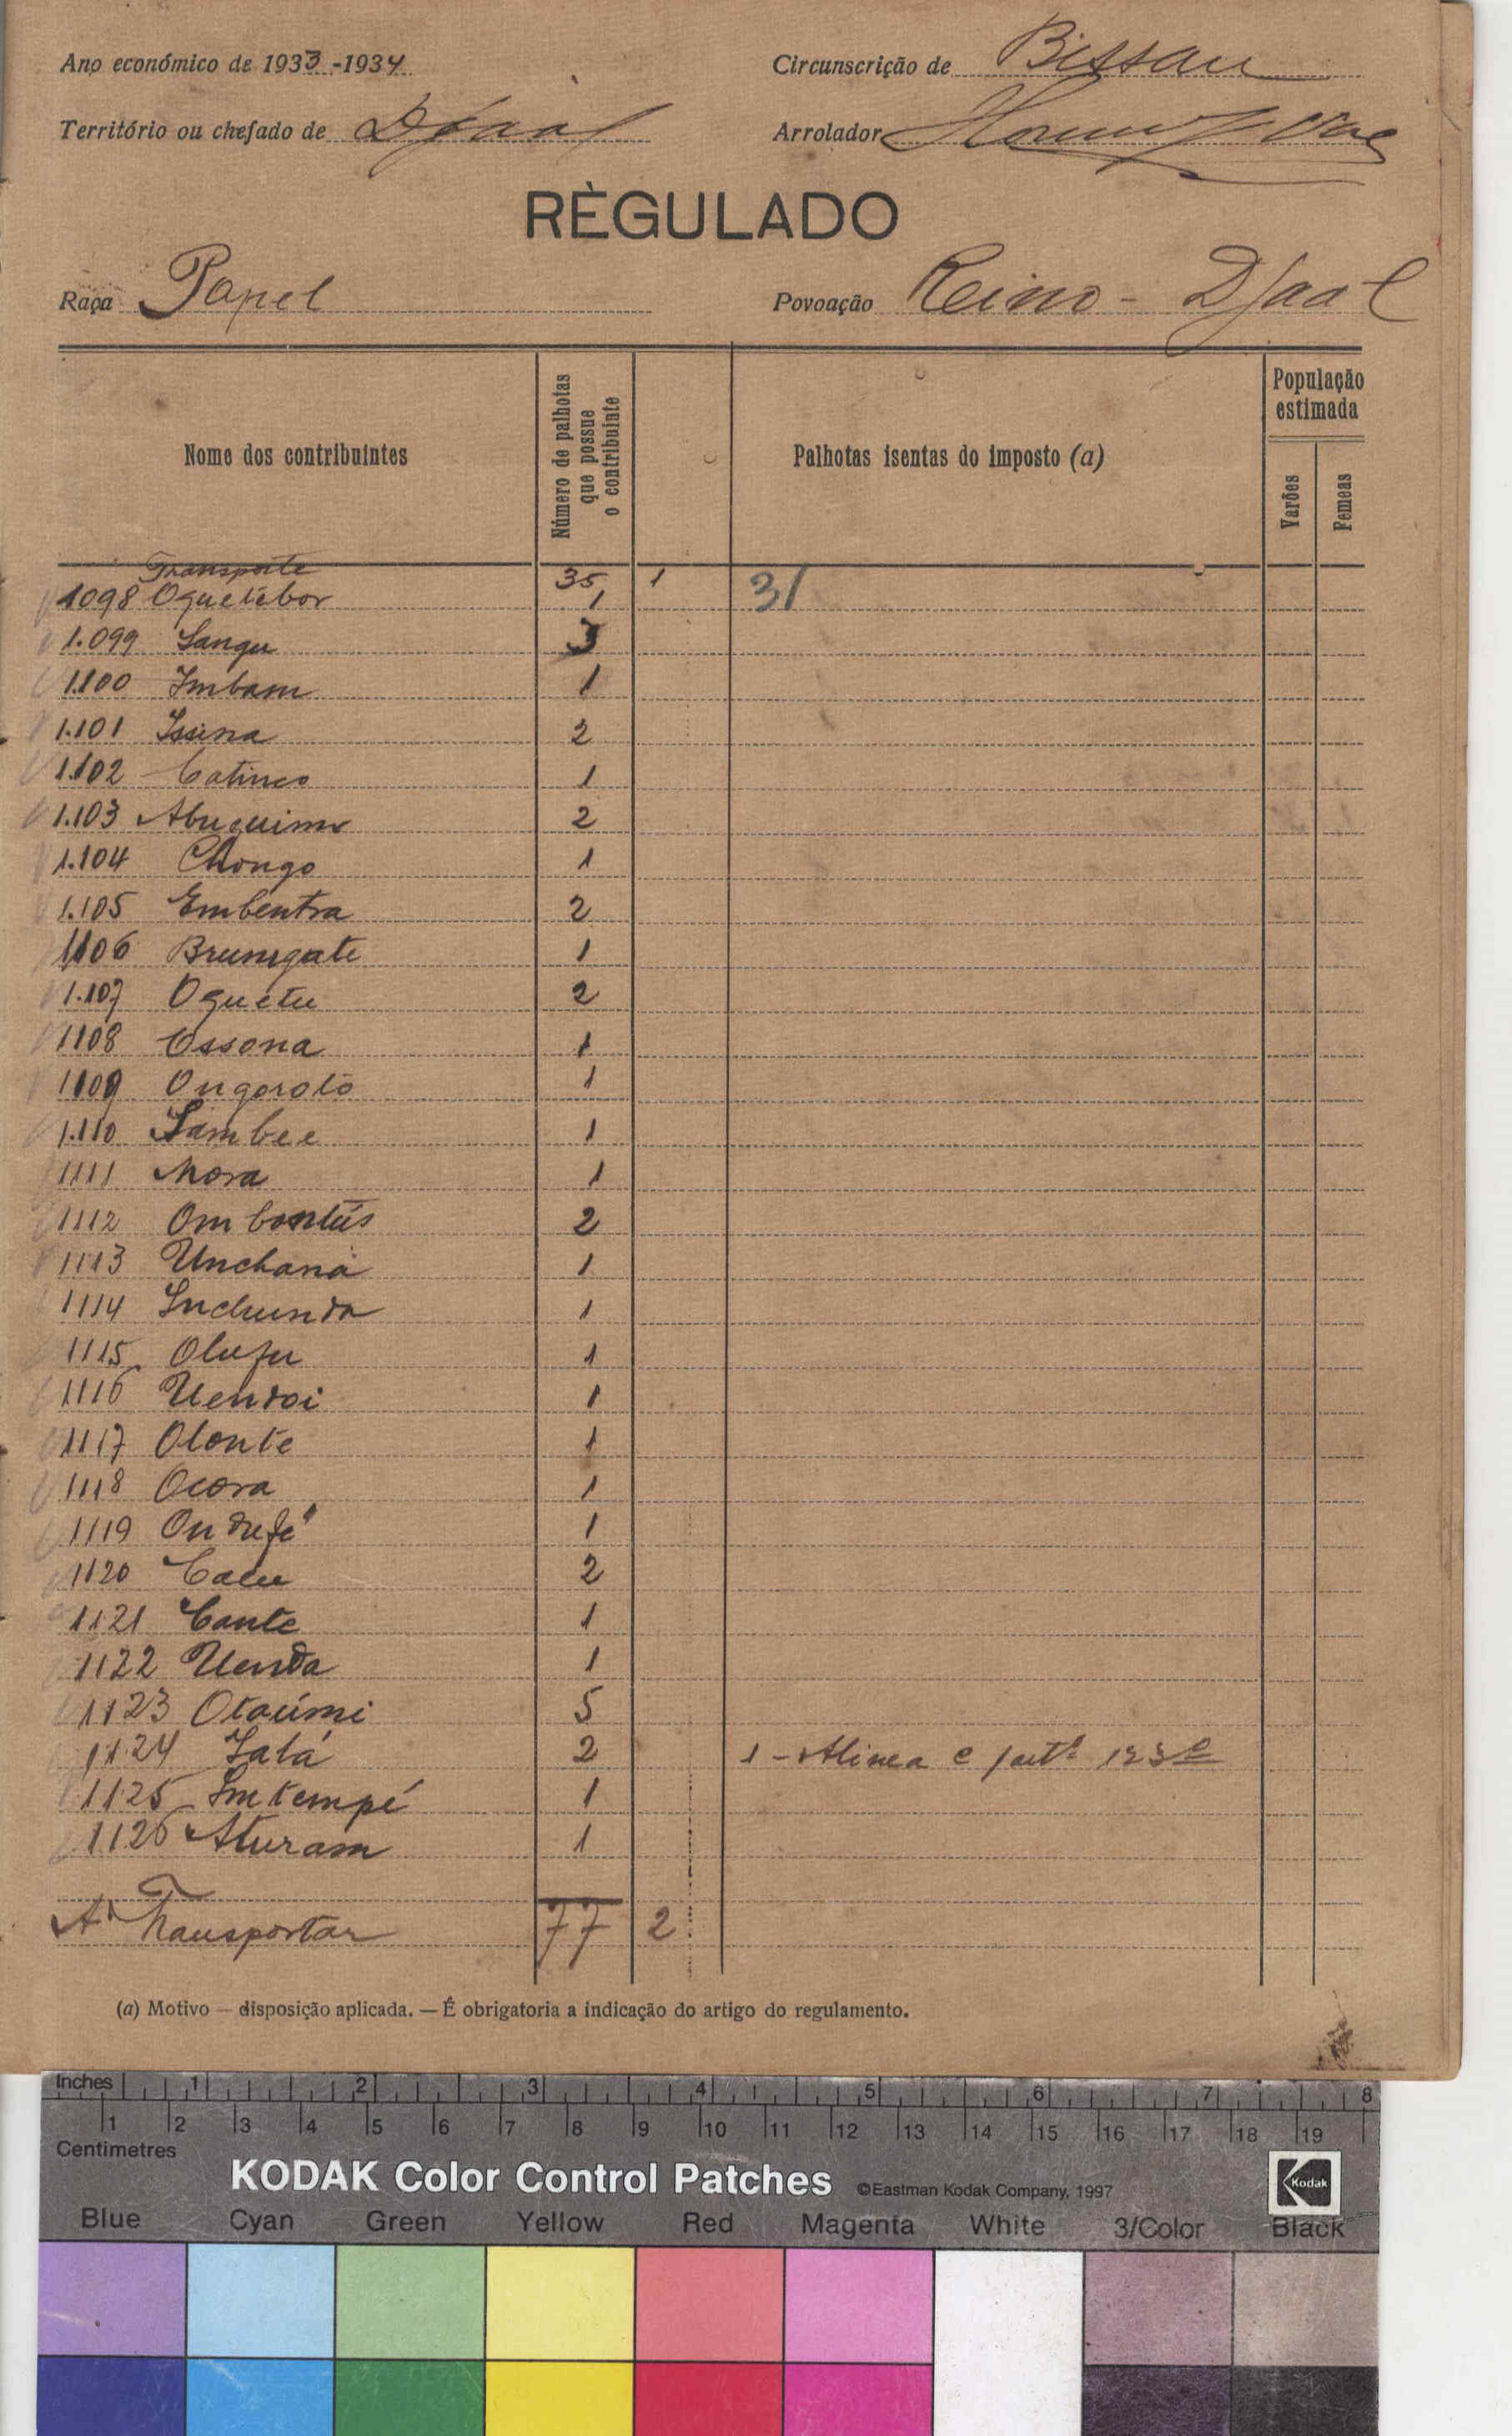 Ano económico de 1933-1934 Circunscrição de Bissau
Território ou chefado de Djaal Arrolador
RÈGULADO
Raça Papel Povoação Reino - Djaal
Nome dos contribuintes Número de palhotas que possue o contribuinte Palhotas isentas do imposto (a) População estimada Varões Femeas
Transporte 35 1
1098 Oquelébor 1 31
1.099 Sangu 3
1.100 Imbam 1
1.101 Issina 2
1.102 Catinco 1
1.103 Abuquimo 2
1.104 Chongo 1
1.105 Embentra 2
1106 Brumgate 1
1.107 Oquétu 2
1108 Ossona 1
1109 Ongoroto 1
1.110 Sambee 1
1111 Mora 1
1112 Ombontús 2
1113 Unchana 1
1114 Inchunda 1
1115 Olufu 1
1116 Uendoi 1
1117 Olonte 1
1118 Ocora 1
1119 Ondufé 1
1120 Cacu 2
1121 Cante 1
1122 Uenda 1
1123 Otaúmi 5
1124 Salá 2 1 - Alinea c 123º
1125 Imtempé 1
1126 Aturam 1
A Transportar 77 2
(a) Motivo — disposição aplicada. — É obrigatoria a indicação do artigo do regulamento.
Inches 1 2 3 4 5 6 7 8
1 2 3 4 5 6 7 8 9 10 11 12 13 14 15 16 17 18 19
Centimetres
KODAK Color Control Patches ©Eastman Kodak Company, 1997 Kodak
Blue Cyan Green Yellow Red Magenta White 3/Color Black